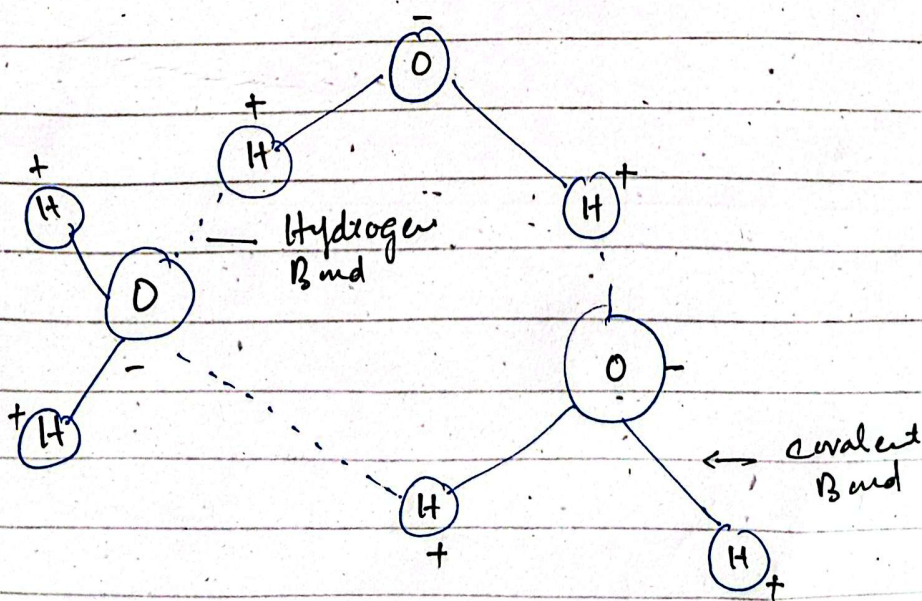 -
O
+
H
+
H
+
H
Hydrogen
Bond
O
-
O
-
+
H
covalent
Bond
H
+
H
+